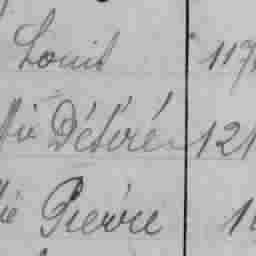 Louis 117
Désiré 121
Pierre 1